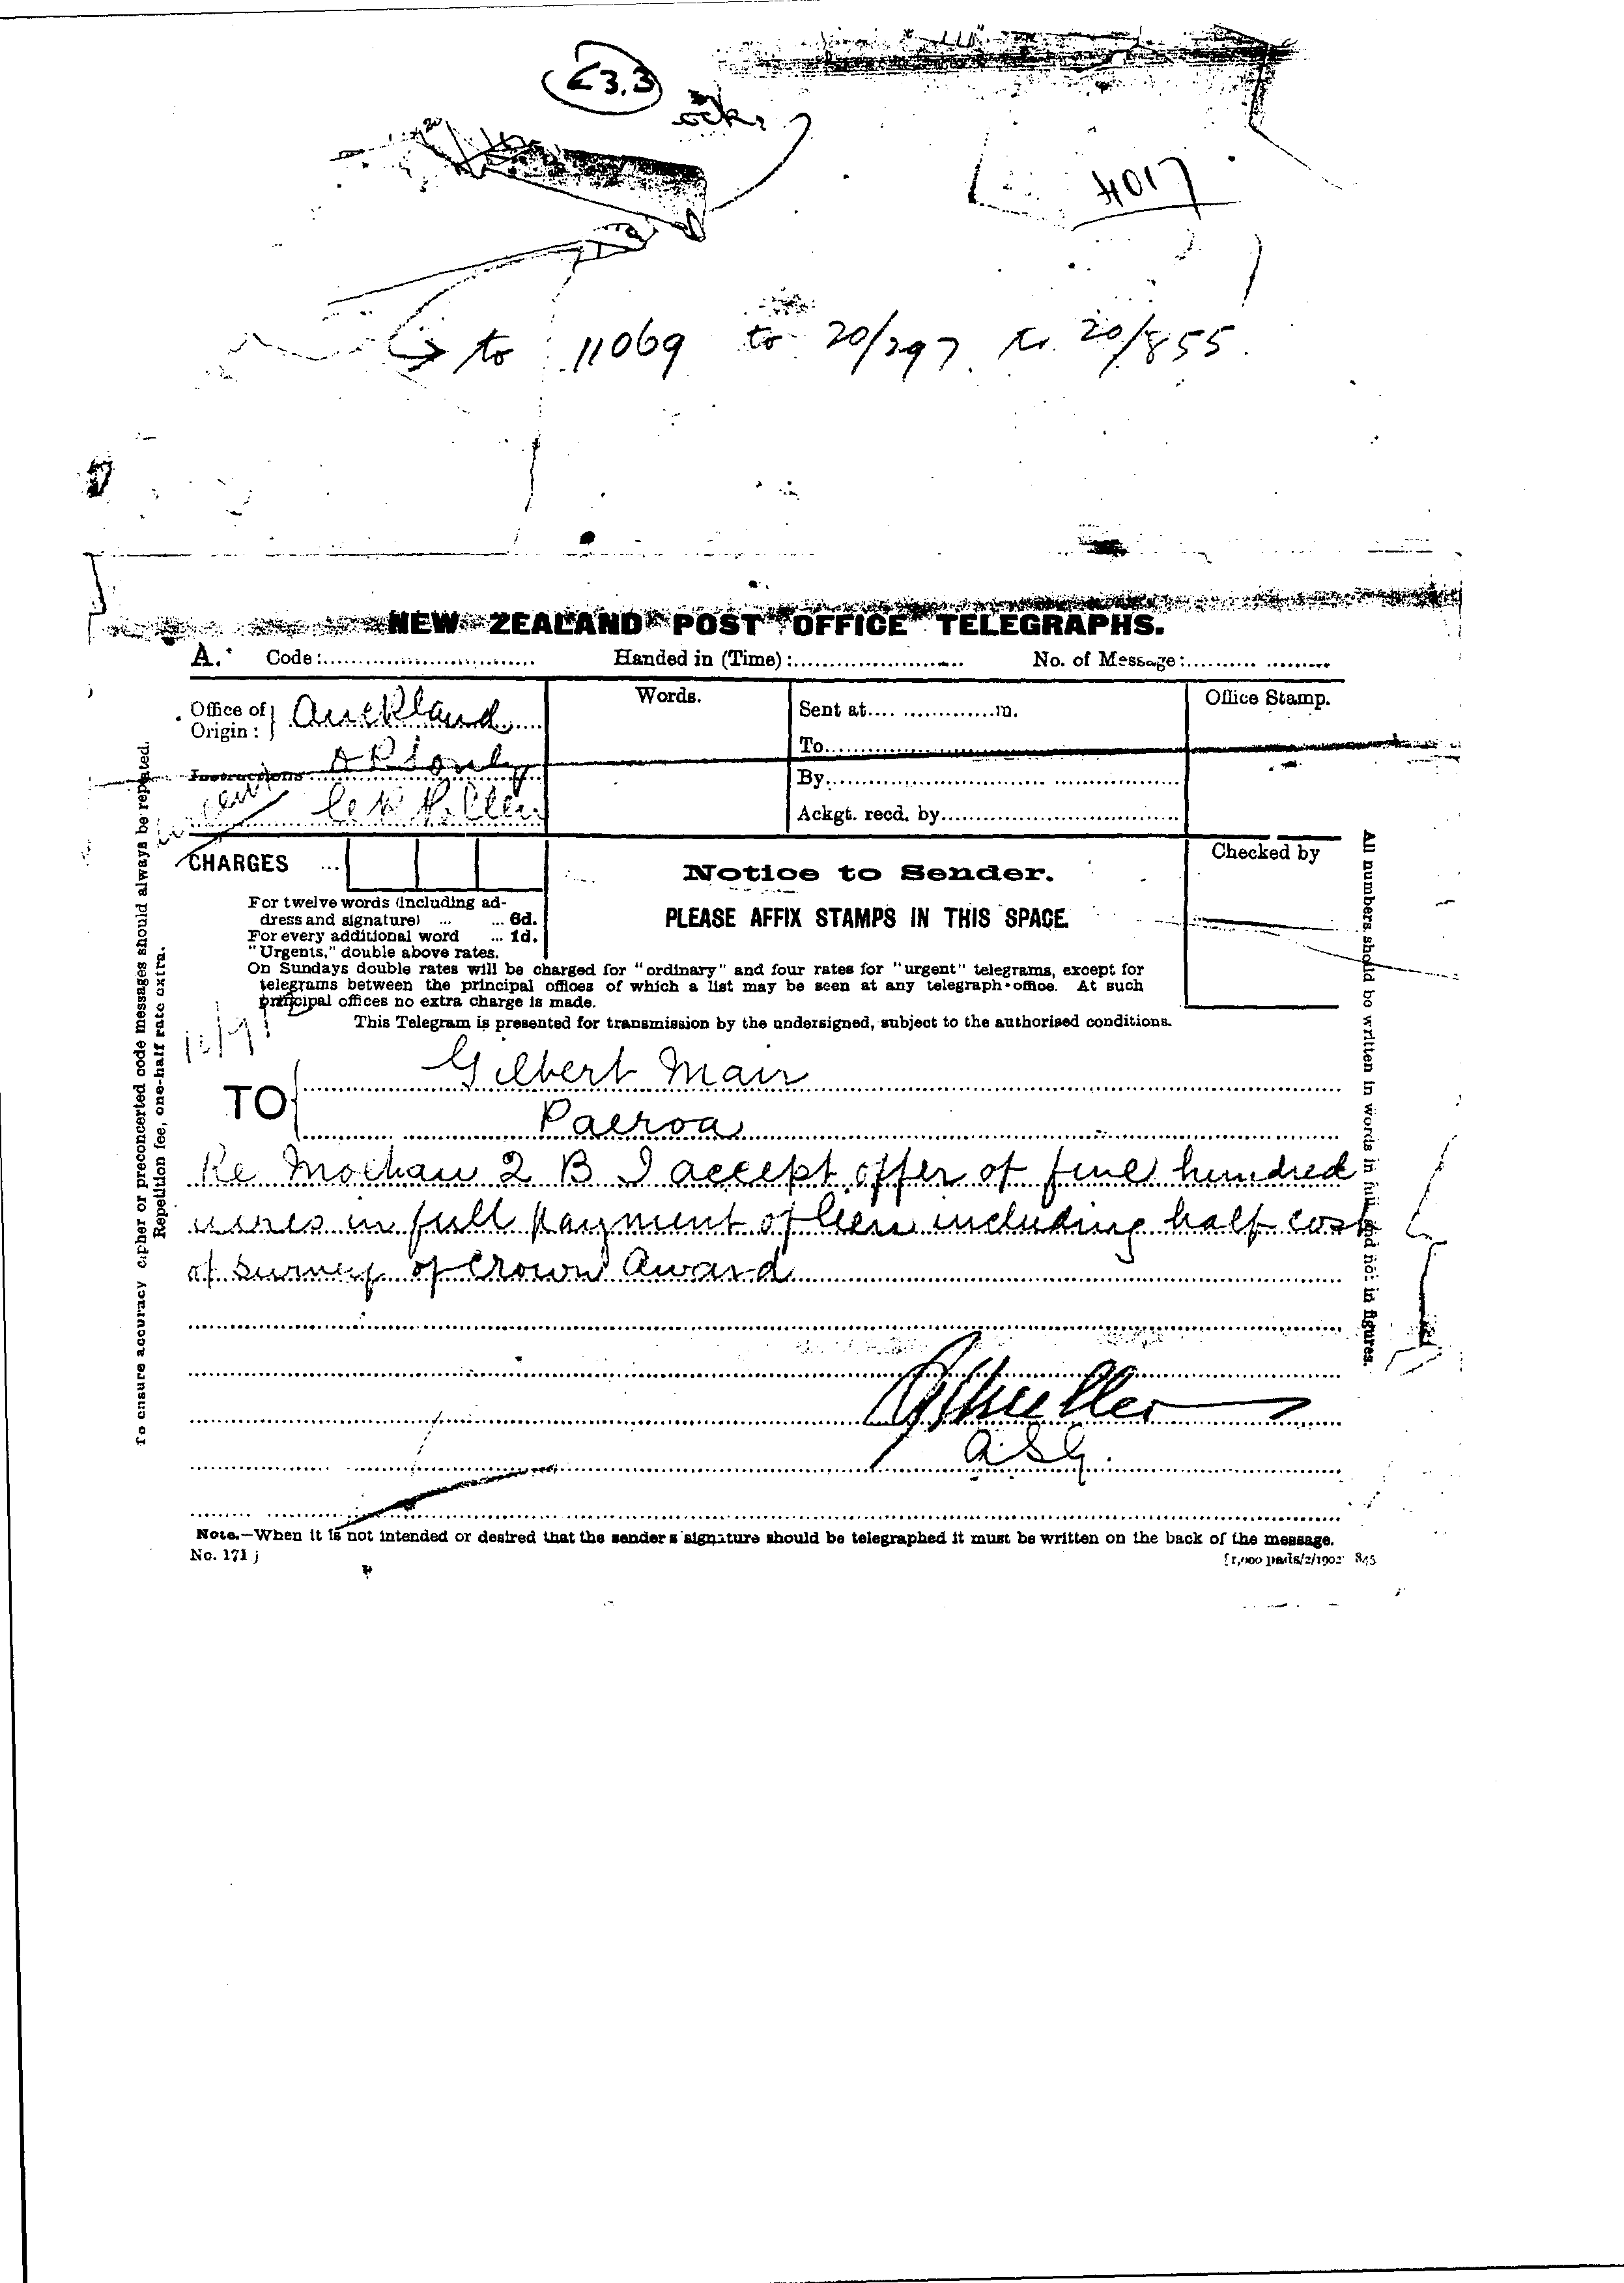 £3.3
4017
to 11069 to 20/297 to 20/855.
NEW ZEALAND POST OFFICE TELEGRAPHS.
A. Code: Handed in (Time): No. of Message:
Office of Origin: Auckland
Words.
Sent at m.
Office Stamp.
To
Instructions
By
Ackgt. recd. by
CHARGES ...
Notice to Sender.
Checked by
For twelve words (including ad-
dress and signature) ... ... 6d.
PLEASE AFFIX STAMPS IN THIS SPACE.
For every additional word ... 1d.
"Urgents," double above rates.
On Sundays double rates will be charged for "ordinary" and four rates for "urgent" telegrams, except for
telegrams between the principal offices of which a list may be seen at any telegraph-office. At such
principal offices no extra charge is made.
This Telegram is presented for transmission by the undersigned, subject to the authorised conditions.
TO
Gilbert Mair
Paeroa
Re Moehau 2 B I accept offer of five hundred
acres in full payment of lien including half cost
of survey of Crown Award
GMueller
A.S.G.
Note.—When it is not intended or desired that the sender's signature should be telegraphed it must be written on the back of the message.
No. 171.]
[1,000 pads/2/1902 845
To ensure accuracy cipher or preconcerted code messages should always be repeated.
Repetition fee, one-half rate extra.
All numbers should be written in words in full and not in figures.